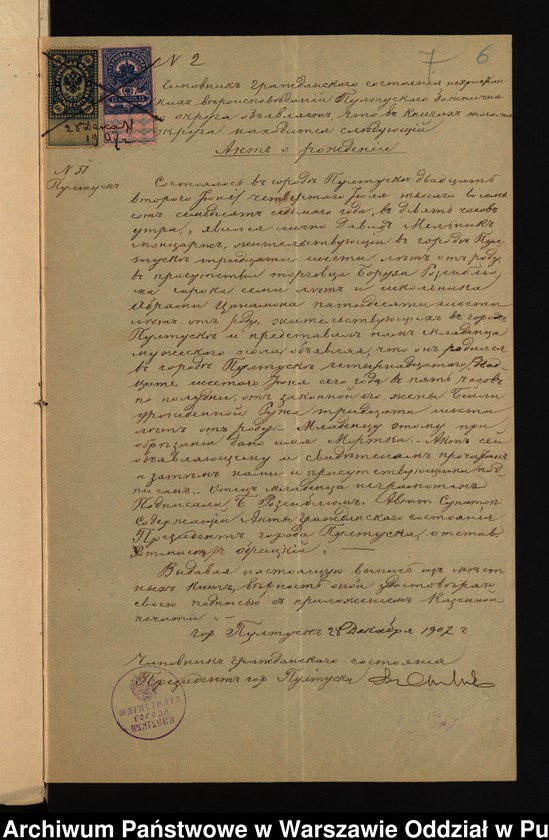 N 2
7 6
Чиновникъ Гражданского состоянія нехристіан
скихъ вѣроисповѣданій Пултускаго Божнична
округа объявляетъ, что въ книгахъ того же
округа находится слѣдующій
Актъ о рожденіи
28 Декабря
1907 г
N 51
Пултускъ
Состоялось въ городѣ Пултускѣ двадцать
второго Іюня/четвертаго Іюля тысяча восемь
сотъ семьдесятъ седьмого года, въ девять часовъ
утра, явился лично Давидъ Мельникъ
жительствующій въ городѣ Пул
тускѣ тридцати шести лѣтъ отъ роду,
въ присутствіи торговца Боруха Розенблю
ма сорока семи лѣтъ и школьника
Абрама пятидесяти шести
лѣтъ отъ роду, жительствующихъ въ городѣ
Пултускѣ и представилъ намъ младенца
мужескаго пола, объявляя, что онъ родился
въ городѣ Пултускѣ четырнадцатаго/два
цать шестого Іюня сего года въ пять часовъ
по полудни, отъ законной его жены Бейли
урожденной Ружа тридцати шести
лѣтъ отъ роду. Младенцу этому при
обрѣзаніи дано имя Мортка. Актъ сей
объявляющему и свидѣтелямъ прочитанъ
и затѣмъ нами и присутствующими под
писанъ. Отецъ младенца неграмотенъ
Подписали: Б Розенблюмъ. Абрам
Содержащій Акты Гражданского состоянія
Президентъ города Пултуска, отстав.
Выдавая настоящую выпись изъ мѣст
ныхъ книгъ, вѣрность оной удостовѣряю
своею подписью съ приложеніемъ казенной
печати.
гор Пултускъ 28 Декабря 1907 г
Чиновникъ гражданского состоянія
Президентъ гор Пултуска
МАГИСТРАТЪ
ГОРОДА
ПУЛТУСКА
Archiwum Państwowe w Warszawie Oddział w Pu